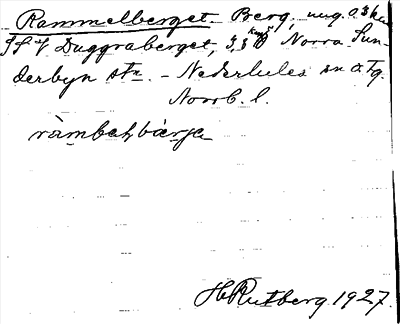 Rammelberget. Berg, ung. 0,3 km
S f v Duggraberget, 3,3 km N Norra Sun-
derbyn stn. - Nederlulea sn o. tg.
Norrb. l.
ràmbəḷbærjə
H Rutberg 1927.